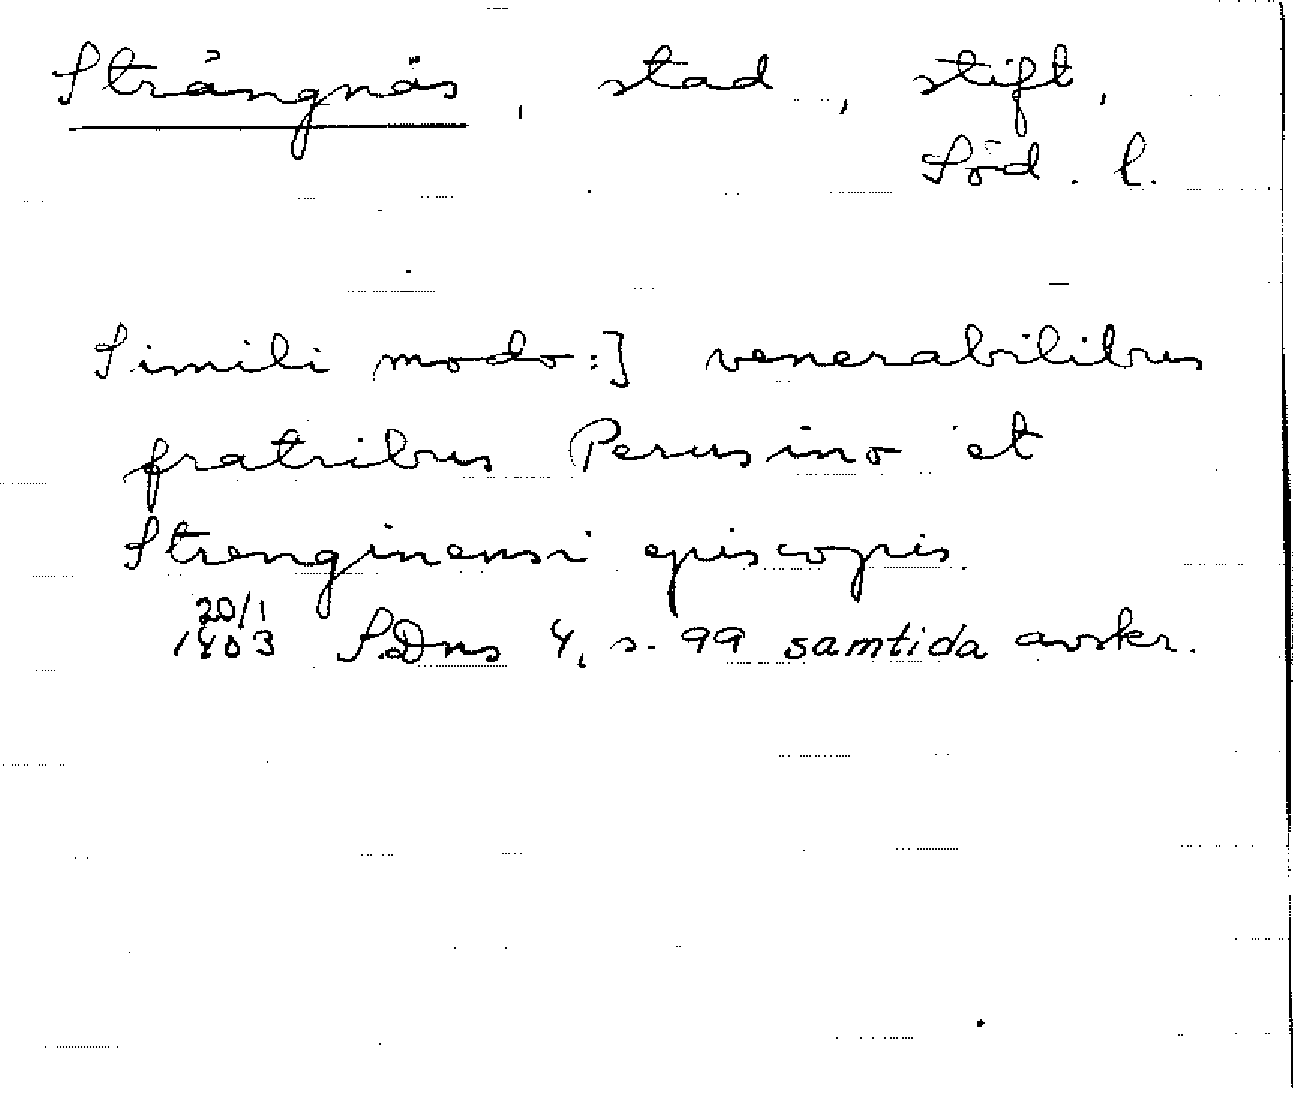 Strängnäs, stad, stift,
Söd. l.
Simili modo:] venerabilibus
fratribus Perusino et
Strenginensi episcopis
20/1
1403 SDns 4, s. 99 samtida avskr.